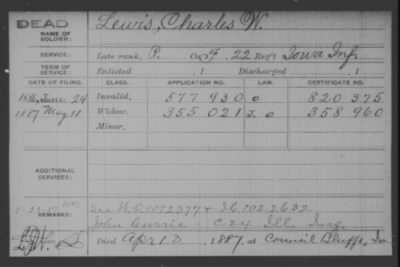 DEAD
NAME OF SOLDIER:
Lewis, Charles W.
SERVICE:
Late rank, P. Co. F, 22 Reg't Iowa Inf.
TERM OF SERVICE:
Enlisted 1 Discharged 1
DATE OF FILING. CLASS. APPLICATION NO. LAW. CERTIFICATE NO.
June 24 Invalid, 577 930 820 375
1887 May 18 Widow, 355 021 358 960
Minor,
ADDITIONAL SERVICES:
REMARKS:
1072377 & 1022632
John Currie - C 24 Ill. Inf.
Died April 3, 1887, at Council Bluffs, Ia